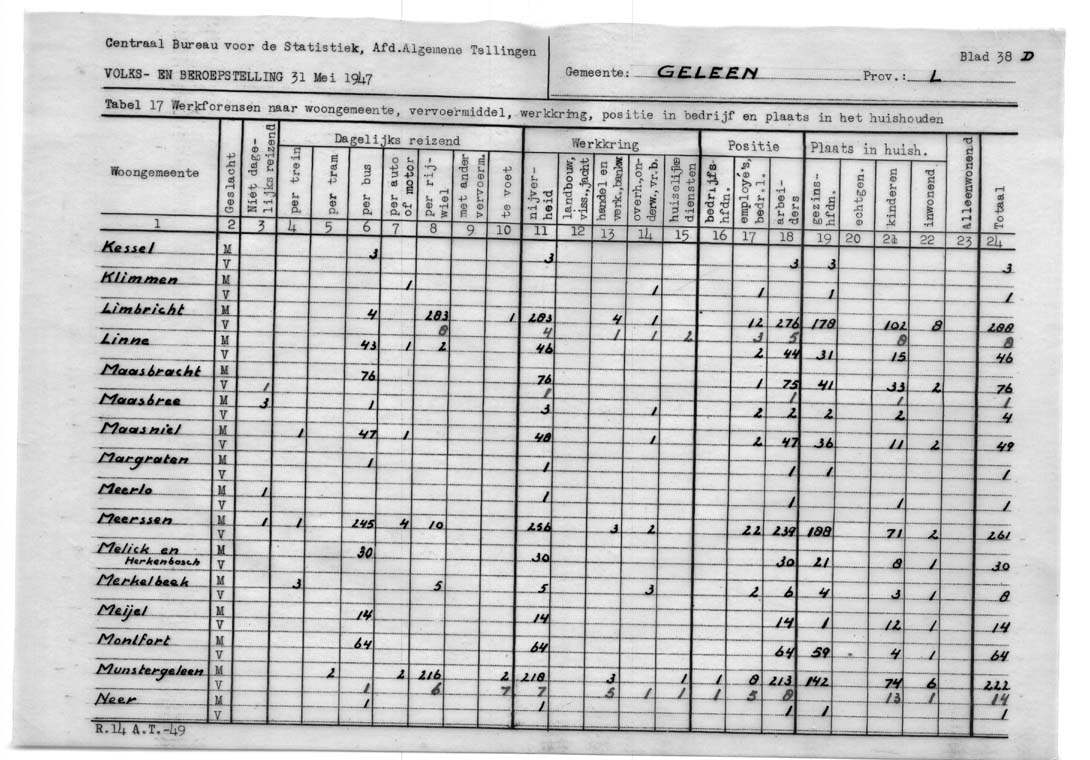 Centraal Bureau voor de Statistiek, Afd.Algemene Tellingen
VOLKS- EN BEROEPSTELLING 31 Mei 1947
Gemeente: GELEEN Prov.: L
Blad 38 D
Tabel 17 Werkforensen naar woongemeente, vervoermiddel, werkkring, positie in bedrijf en plaats in het huishouden
Woongemeente Geslacht Niet dage-lijks reizend Dagelijks reizend Werkkring Positie Plaats in huish. Alleenwonend Totaal
per trein per tram per bus per auto of motor per rij-wiel met ander vervoerm. te voet nijver-heid landbouw, viss.,jacht handel en verk.,bankw overh.,on-derw.,vr.b. huiselijke diensten bedrijfs-hfdn. employé's, bedr.l. arbei-ders gezins-hfdn. echtgen. kinderen inwonend.
1 2 3 4 5 6 7 8 9 10 11 12 13 14 15 16 17 18 19 20 21 22 23 24
Kessel M 3 3 3 3 3
V
Klimmen M 1 1 1 1 1
V
Limbricht M 4 283 1 283 4 1 12 276 178 102 8 288
V 8 4 1 1 2 3 5 8 8
Linne M 43 1 2 46 2 44 31 15 46
V
Maasbracht M 76 76 1 75 41 33 2 76
V 1 1 1 1 1
Maasbree M 3 1 3 1 2 2 2 2 4
V
Maasniel M 1 47 1 48 1 2 47 36 11 2 49
V
Margraten M 1 1 1 1 1
V
Meerlo M 1 1 1 1 1
V
Meerssen M 1 1 245 4 10 256 3 2 22 239 188 71 2 261
V
Melick en Herkenbosch M 30 30 30 21 8 1 30
V
Merkelbeek M 3 5 5 3 2 6 4 3 1 8
V
Meijel M 14 14 14 1 12 1 14
V
Montfort M 64 64 64 59 4 1 64
V
Munstergeleen M 2 2 216 2 218 3 1 1 8 213 142 74 6 222
V 1 6 7 7 5 1 1 1 5 8 13 1 14
Neer M 1 1 1 1 1
V
R.14 A.T.-49